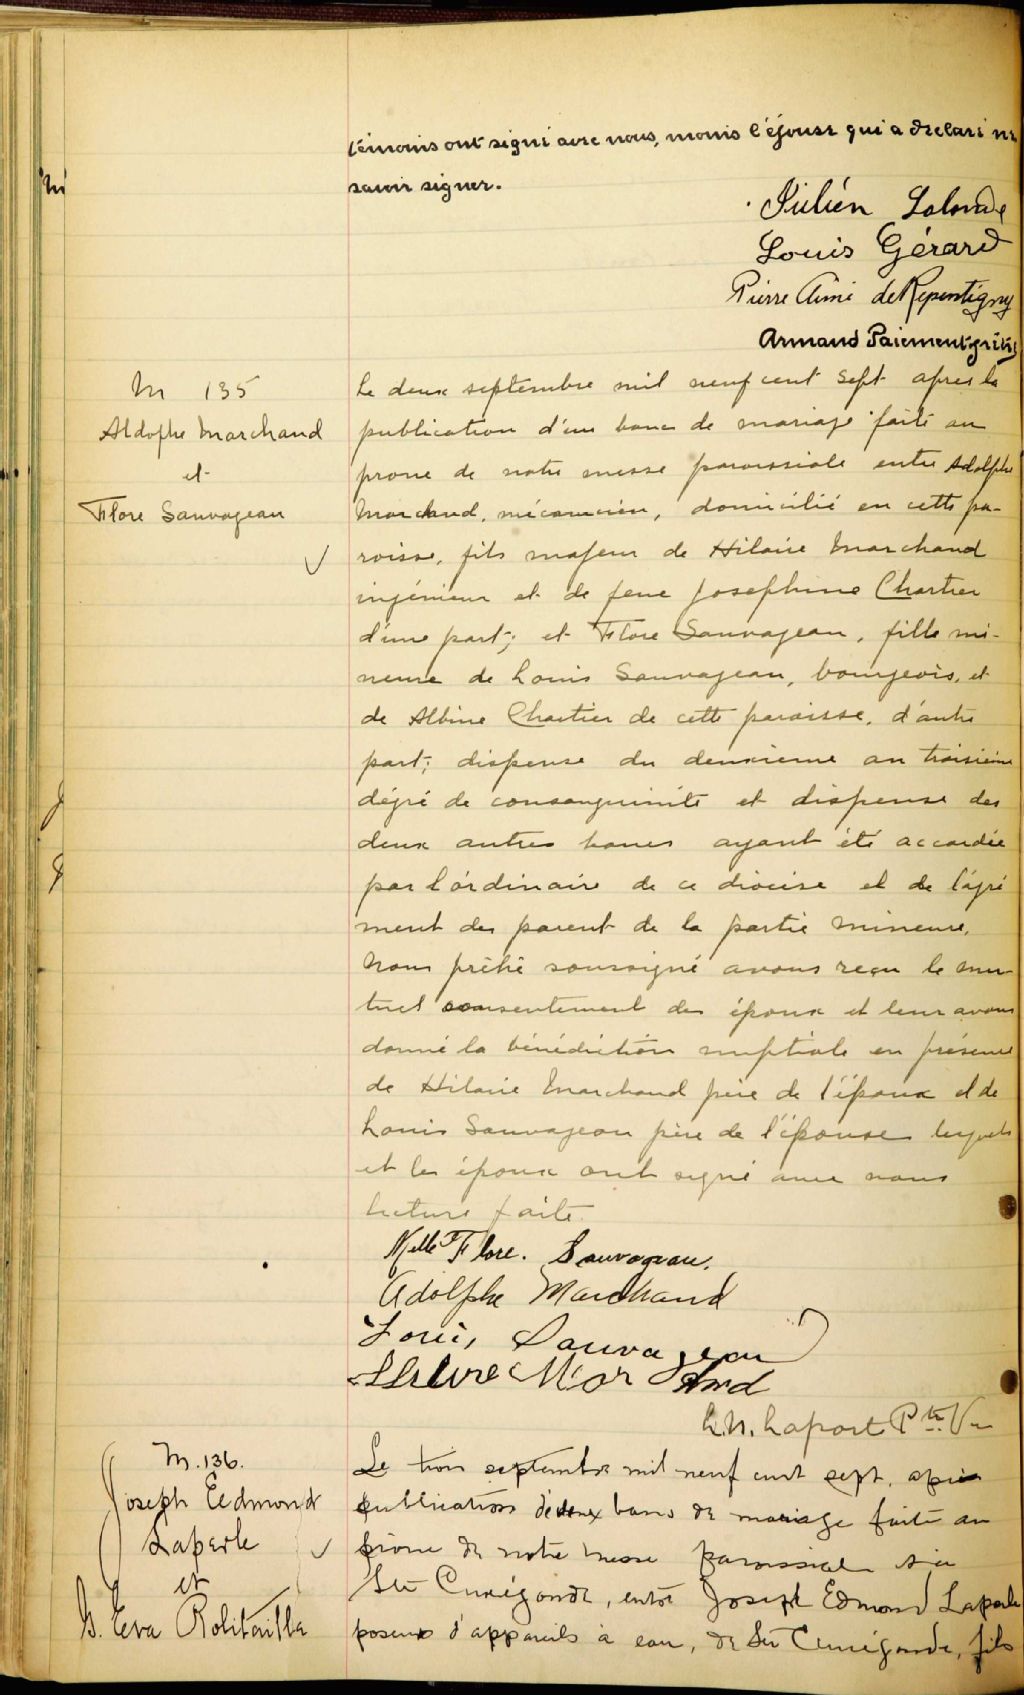 témoins ont signé avec nous, moins l'épouse qui a déclaré ne
savoir signer.
Julién Lalonde
Louis Gérard
Pierre Aimé de Repentigny
Armand Paiement ptre
M 135
Aldophe Marchand
et
Flore Sauvageau
Le deux septembre mil neuf cent sept après la
publication d'un banc de mariage faite au
prone de notre messe paroissiale entre Adolphe
Marchand, mécanicien, domicilié en cette pa-
roisse, fils majeur de Hilaire Marchand
ingénieur et de feue Josephine Chartier
d'une part; et Flore Sauvageau, fille mi-
neure de Louis Sauvageau, bourgeois, et
de Albine Chartier de cette paroisse, d'autre
part; dispense du deuxieme au troisième
dégré de consanguinité et dispense des
deux autres bancs ayant été accordée
par l'ordinaire de ce diocèse et de l'agré
ment des parent de la partie mineure,
Nous prêtre soussigné avons reçu le mu-
tuel consentement des époux et leur avons
donné la bénédiction nuptiale en présence
de Hilaire Marchand père de l'époux et de
Louis Sauvageau père de l'épouse lesquels
et les époux ont signé avec nous
lecture faite.
Melle Flore. Sauvageau.
Adolphe Marchand
Louis Sauvageau
Marchand
L.N. Laporte Ptre
M. 136.
Joseph Eedmond
Laperle
et
Eva Robitaille
Le trois septembre mil neuf cent sept, après
publication de deux bans de mariage faite au
prone de notre messe paroissiale
Ste Cunégonde, entre Joseph Edmond Laperle
poseur d'appareils à eau, de Ste Cunégonde, fils